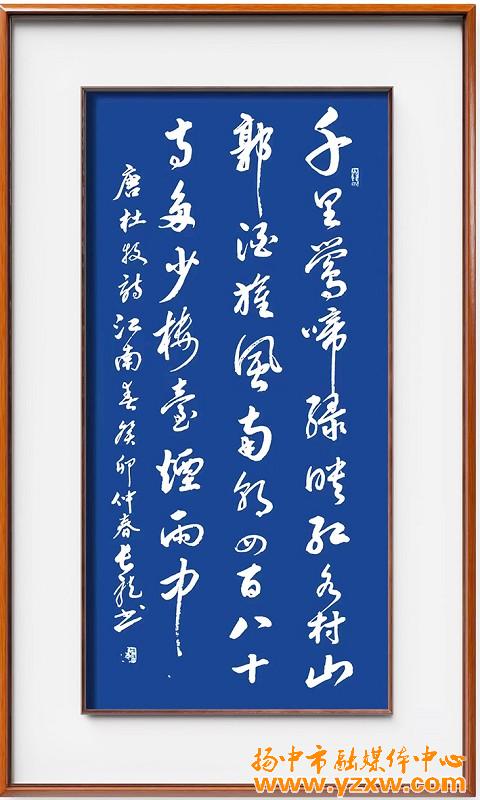 千里鶯啼綠映紅水村山
郭酒旗風南朝四百八十
寺多少樓臺煙雨中
唐杜牧詩江南春癸卯仲春長龍书
扬中市融媒体中心
www.yzxw.com